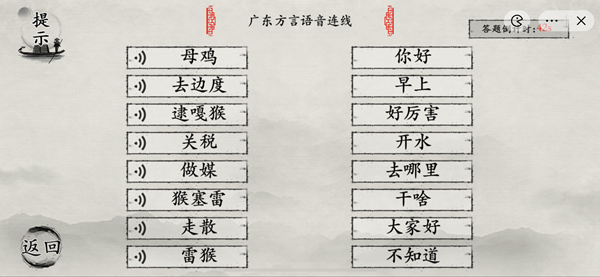 提示
广东方言语音连线
母鸡 你好
去边度 早上
逮嘎猴 好厉害
关税 开水
做媒 去哪里
猴塞雷 干啥
走散 大家好
雷猴 不知道
返回